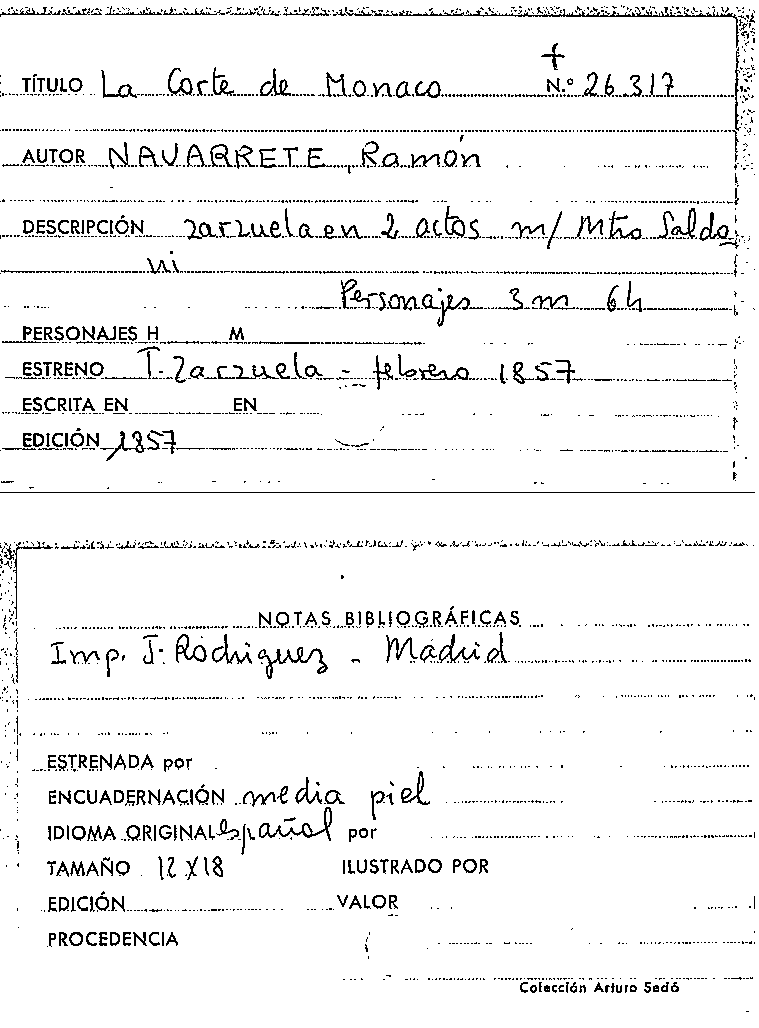 +
TÍTULO La Corte de Monaco N.º 26.317
AUTOR NAVARRETE, Ramón
DESCRIPCIÓN zarzuela en 2 actos m/ Mtro Salda
ni
Personajes 3 m 6 h
PERSONAJES H M
ESTRENO T. Zarzuela - febrero 1857
ESCRITA EN EN
EDICIÓN 1857
NOTAS BIBLIOGRÁFICAS
Imp. J. Rodriguez - Madrid
ESTRENADA por
ENCUADERNACIÓN media piel
IDIOMA ORIGINAL español por
TAMAÑO 12 X 18 ILUSTRADO POR
EDICIÓN VALOR
PROCEDENCIA
Colección Arturo Sedó